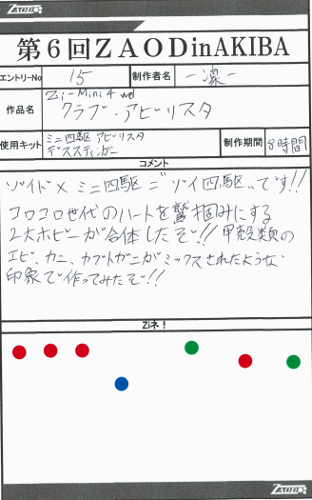 ZAOD
第6回ZAODinAKIBA
エントリーNo 15 制作者名 -凛-
作品名 Zi-Mini4wd
クラブ・アビリスタ
使用キット ミニ四駆 アビリスタ
デススティンガー 制作期間 8時間
コメント
ゾイド×ミニ四駆=“ゾイ四駆”です!!
コロコロ世代のハートを鷲掴みにする
2大ホビーが合体したぞ!! 甲殻類の
エビ、カニ、カブトガニがミックスされたような
印象で作ってみたぞ!!
Ziネ!
ZAOD